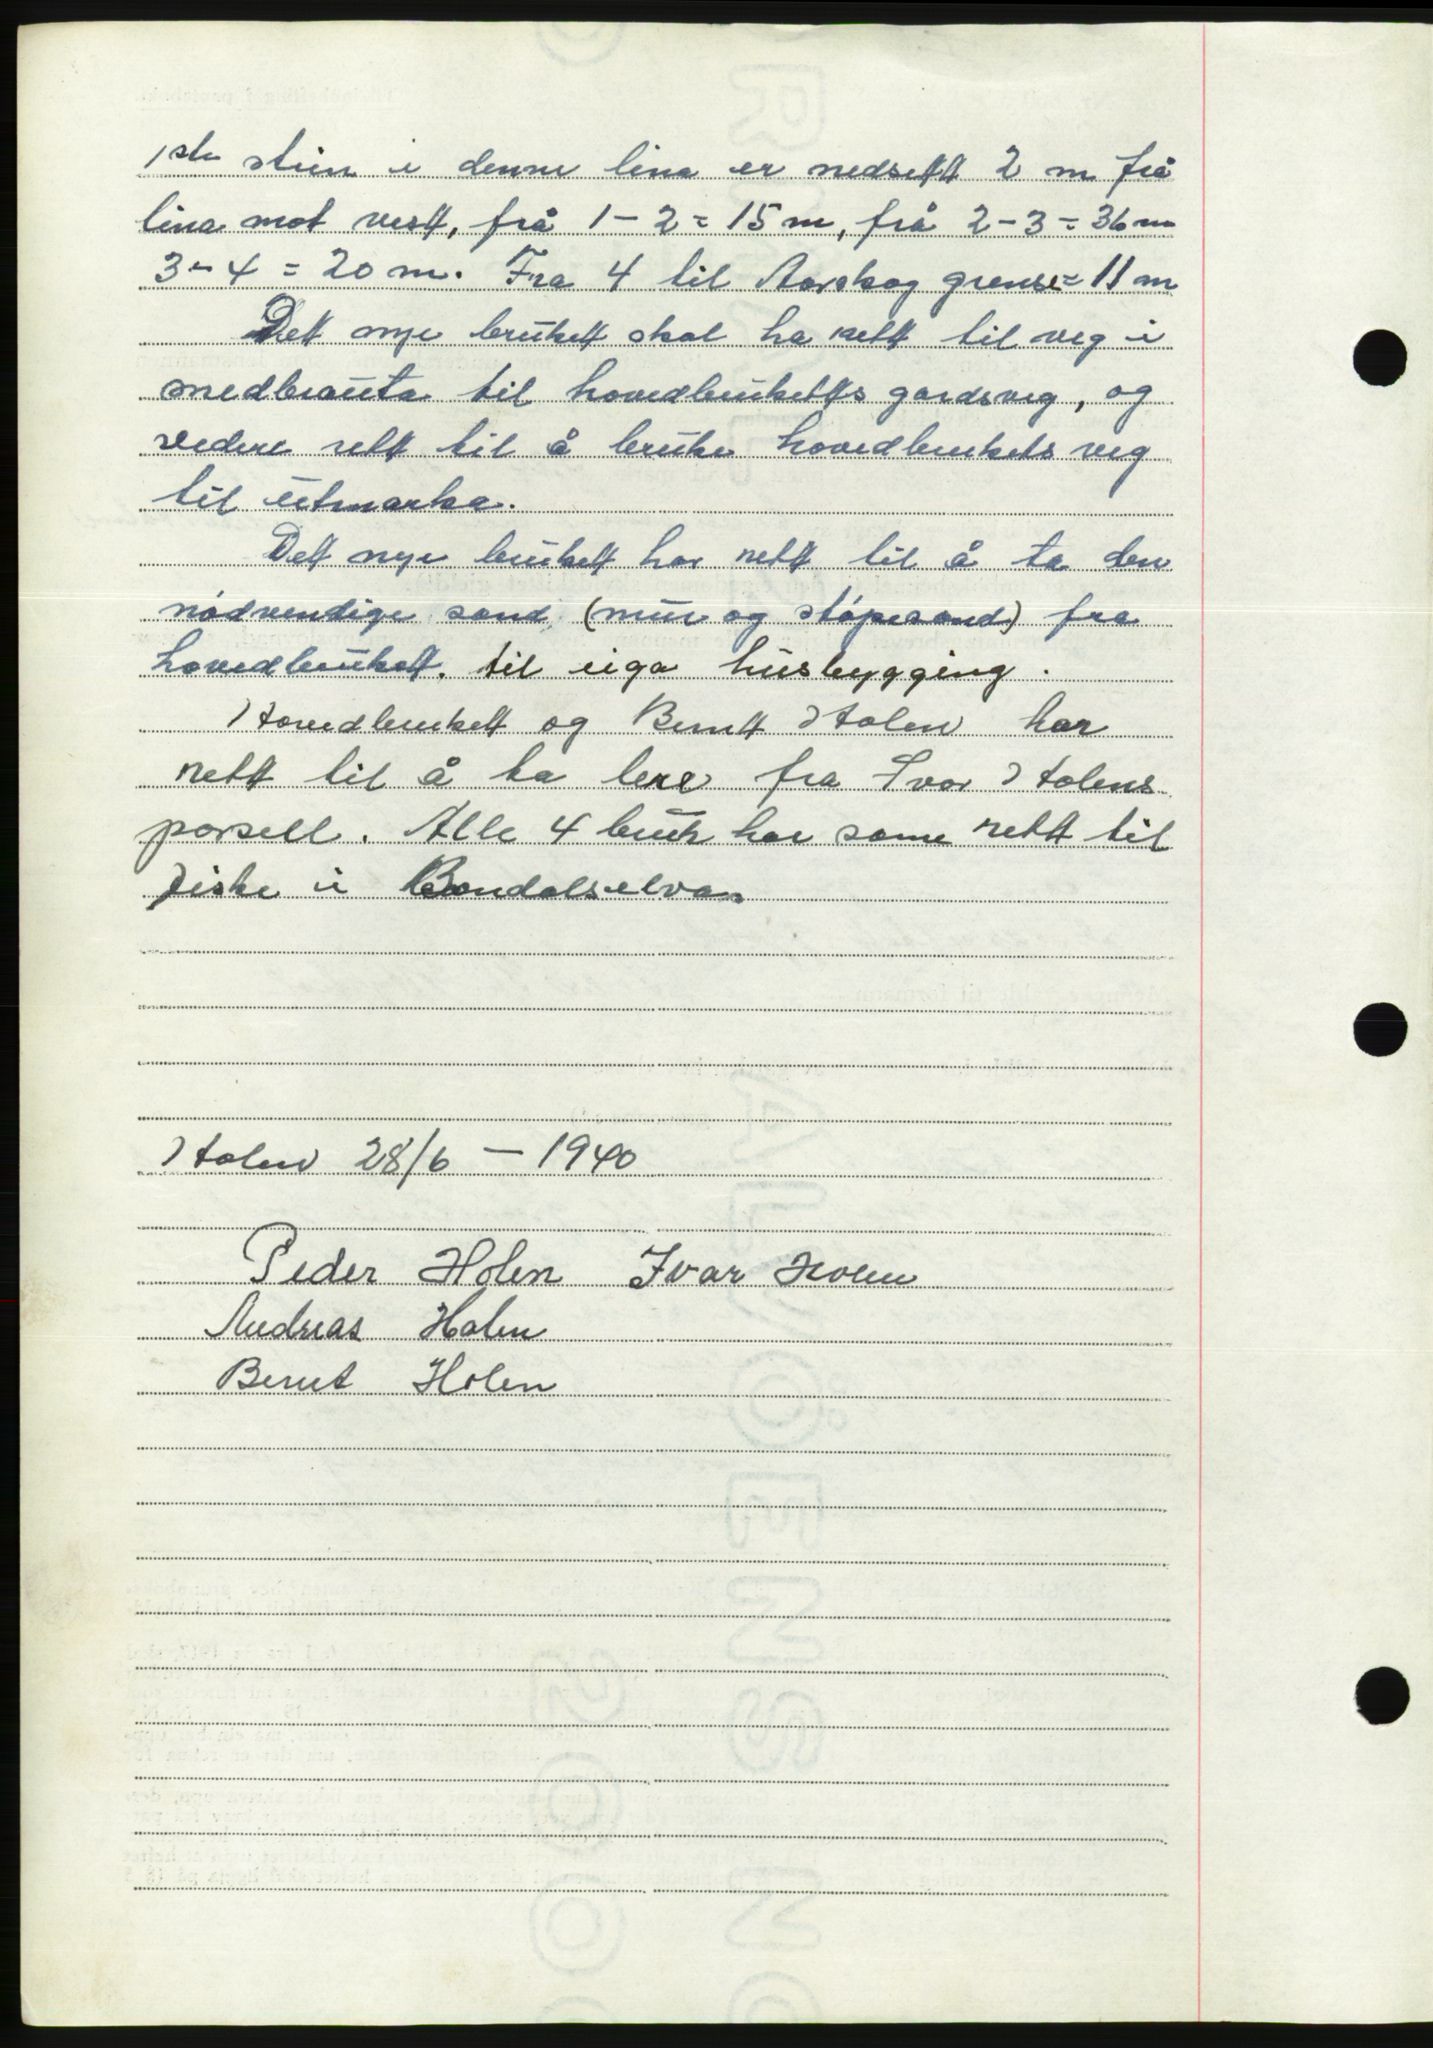 1ste stein i denne lina er nedsett 2 m frå
lina mot vest, frå 1-2 = 15 m, frå 2-3 = 36 m
3-4 = 20 m. Fra 4 til Aarskog grense = 11 m
Det nye bruket skal ha rett til veg i
nedbrauta til hovedbruketts gardsveg, og
videre rett til å bruke hovedbrukets veg
til utmarka.
Det nye bruket har rett til å ta den
nødvendige sand (mur og støpesand) fra
hovedbruket. til eiga husbygging.
Hovedbruket og Bernt Holen har
rett til å ta lere fra Ivar Holens
parsell. Alle 4 bruk har same rett til
fiske i Bondalselva.
Holen 28/6 - 1940
Peder Holen Ivar Holen
Andreas Holen
Bernt Holen